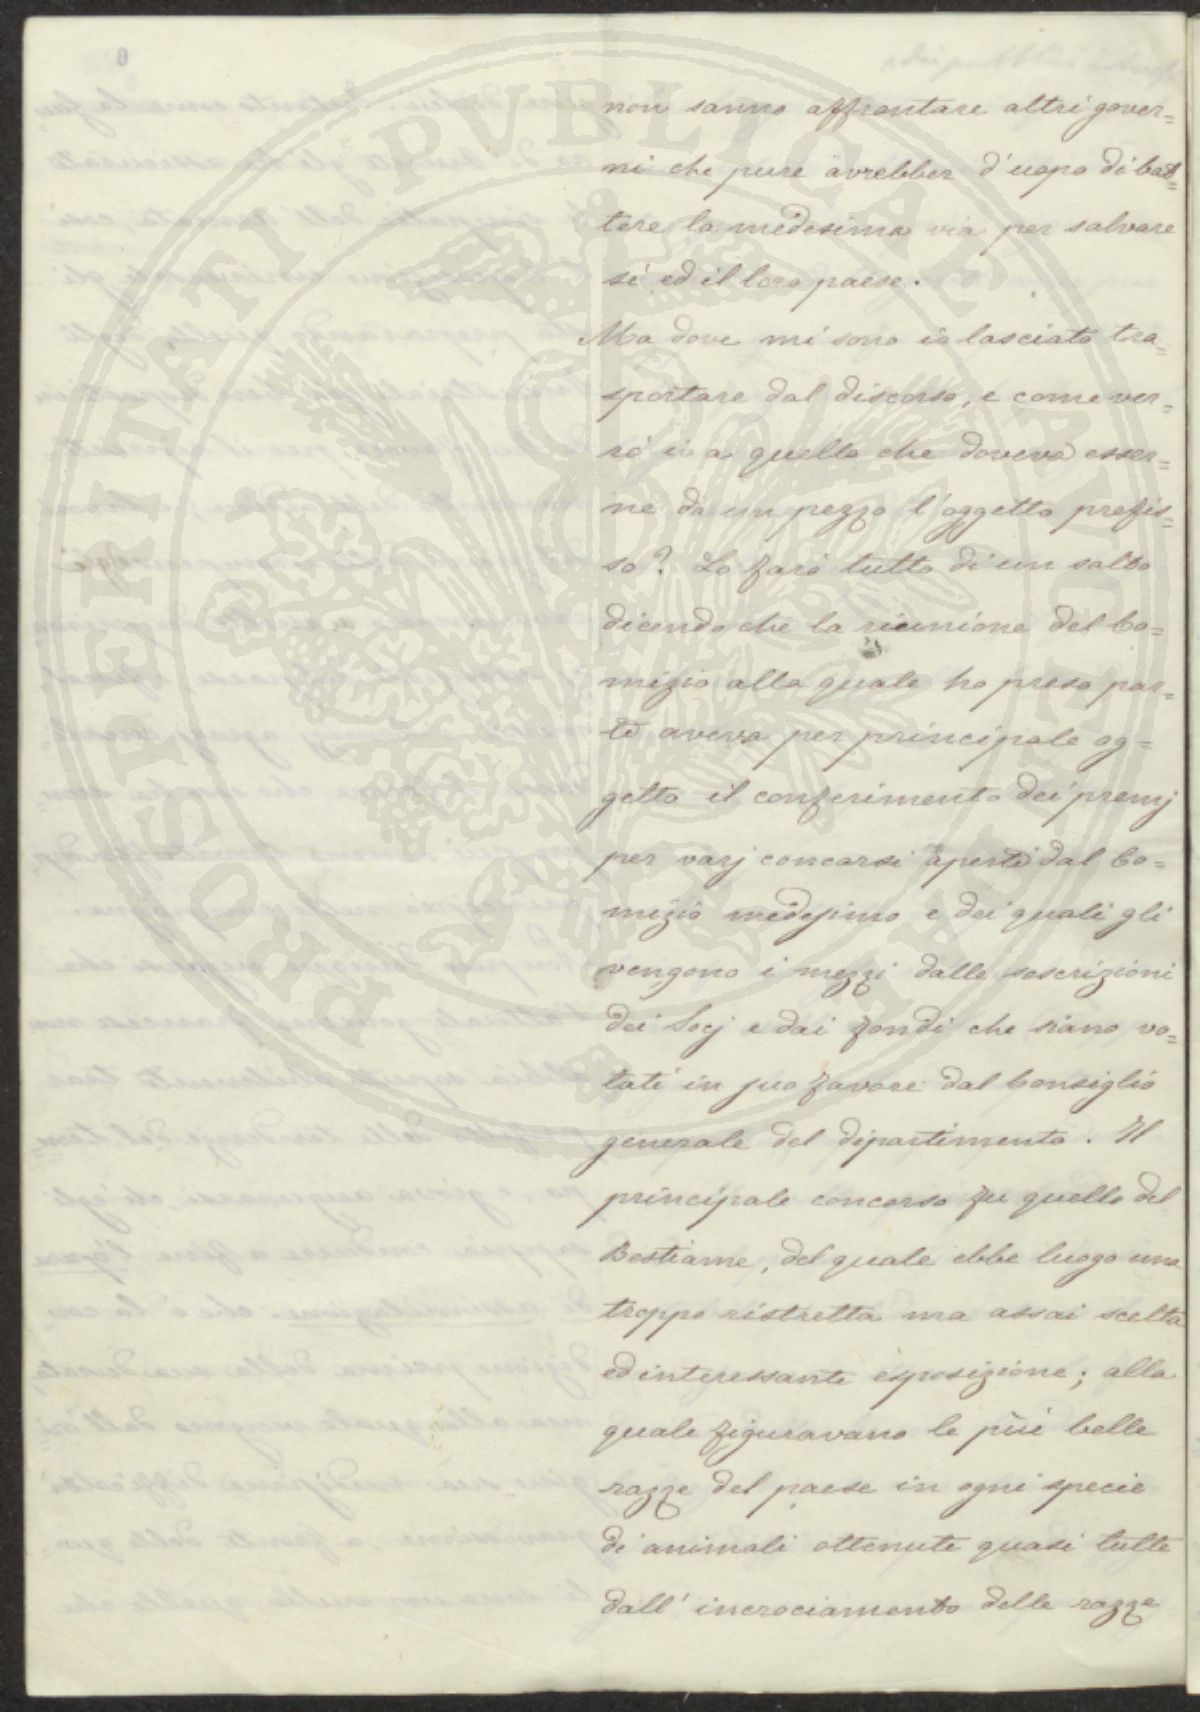 non sanno affrontare altri gover=
ni che pure avrebber d'uopo di bat=
tere la medesima via per salvare
sé ed il loro paese.
Ma dove mi sono io lasciato tra=
sportare dal discorso, e come ver=
rò io a quello che doveva esser=
ne da un pezzo l'oggetto prefis=
so? Lo farò tutto di un salto
dicendo che la riunione del Co=
mizio alla quale ho preso par=
te aveva per principale og=
getto il conferimento dei premj
per varj concorsi aperti dal Co=
mizio medesimo e dei quali gli
vengono i mezzi dalle soscrizioni
dei Socj e dai fondi che siano vo=
tati in suo favore dal Consiglio
generale del dipartimento. Il
principale concorso fu quello del
Bestiame, del quale ebbe luogo una
troppo ristretta ma assai scelta
ed interessante esposizione; alla
quale figuravano le più belle
razze del paese in ogni specie
di animali ottenute quasi tutte
dall'incrociamento delle razze
PROSPERITATI PUBLICAE AUGENDAE